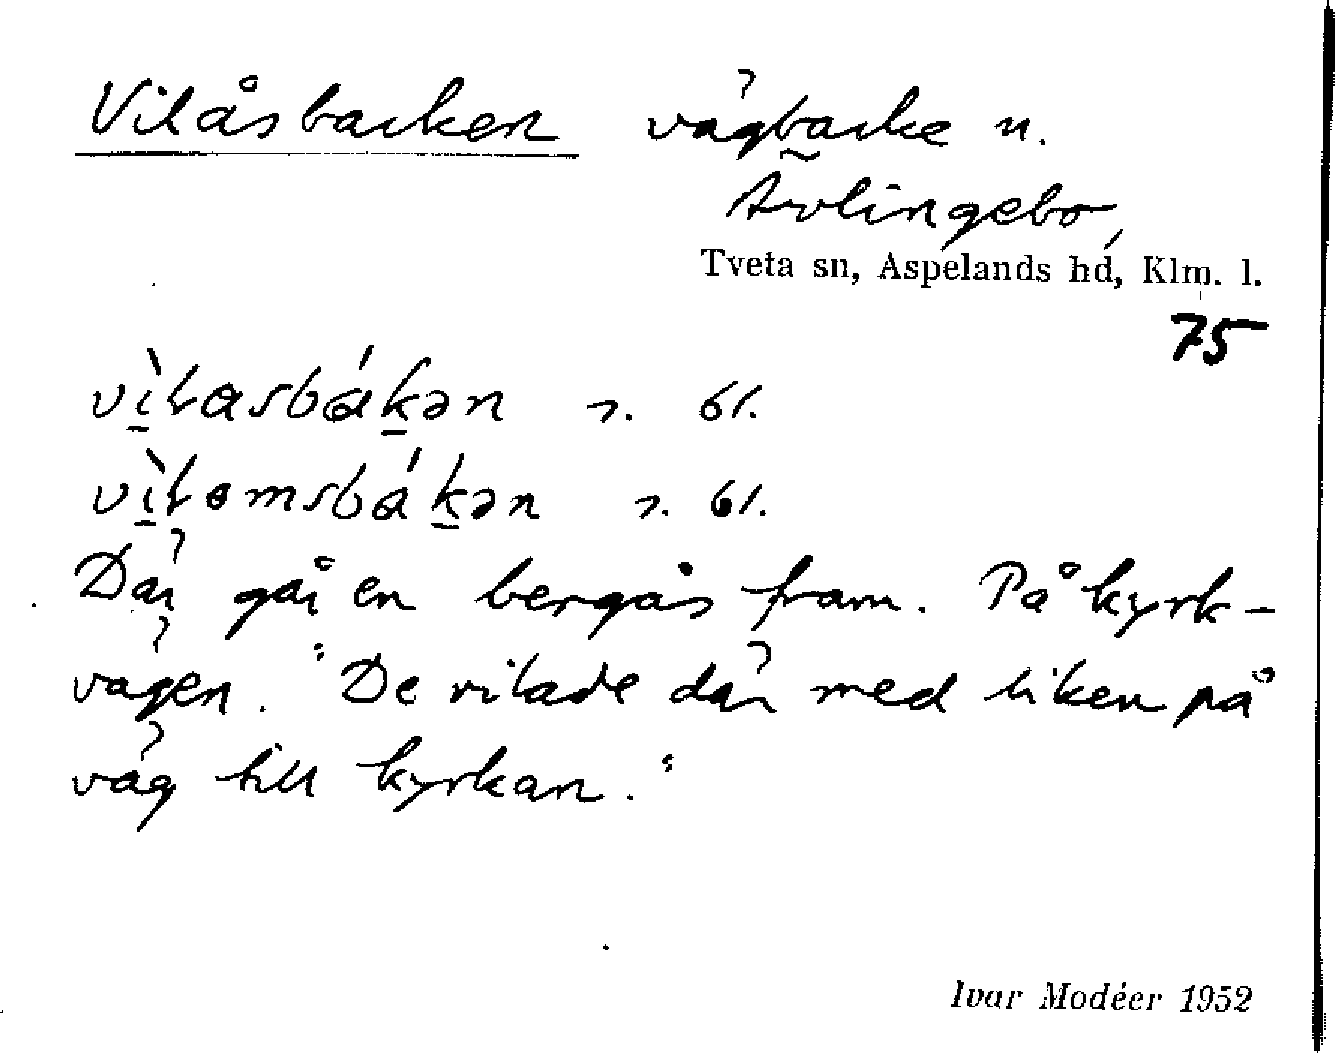 Vilåsbacken vägbacke n.
Ävlingebo,
Tveta sn, Aspelands hd, Klm. l.
75
vìlasbákən
vìlomsbákən
Där går en bergås fram. På kyrk-
vägen. "De vilade där med liken på
väg till kyrkan."
Ivar Modéer 1952